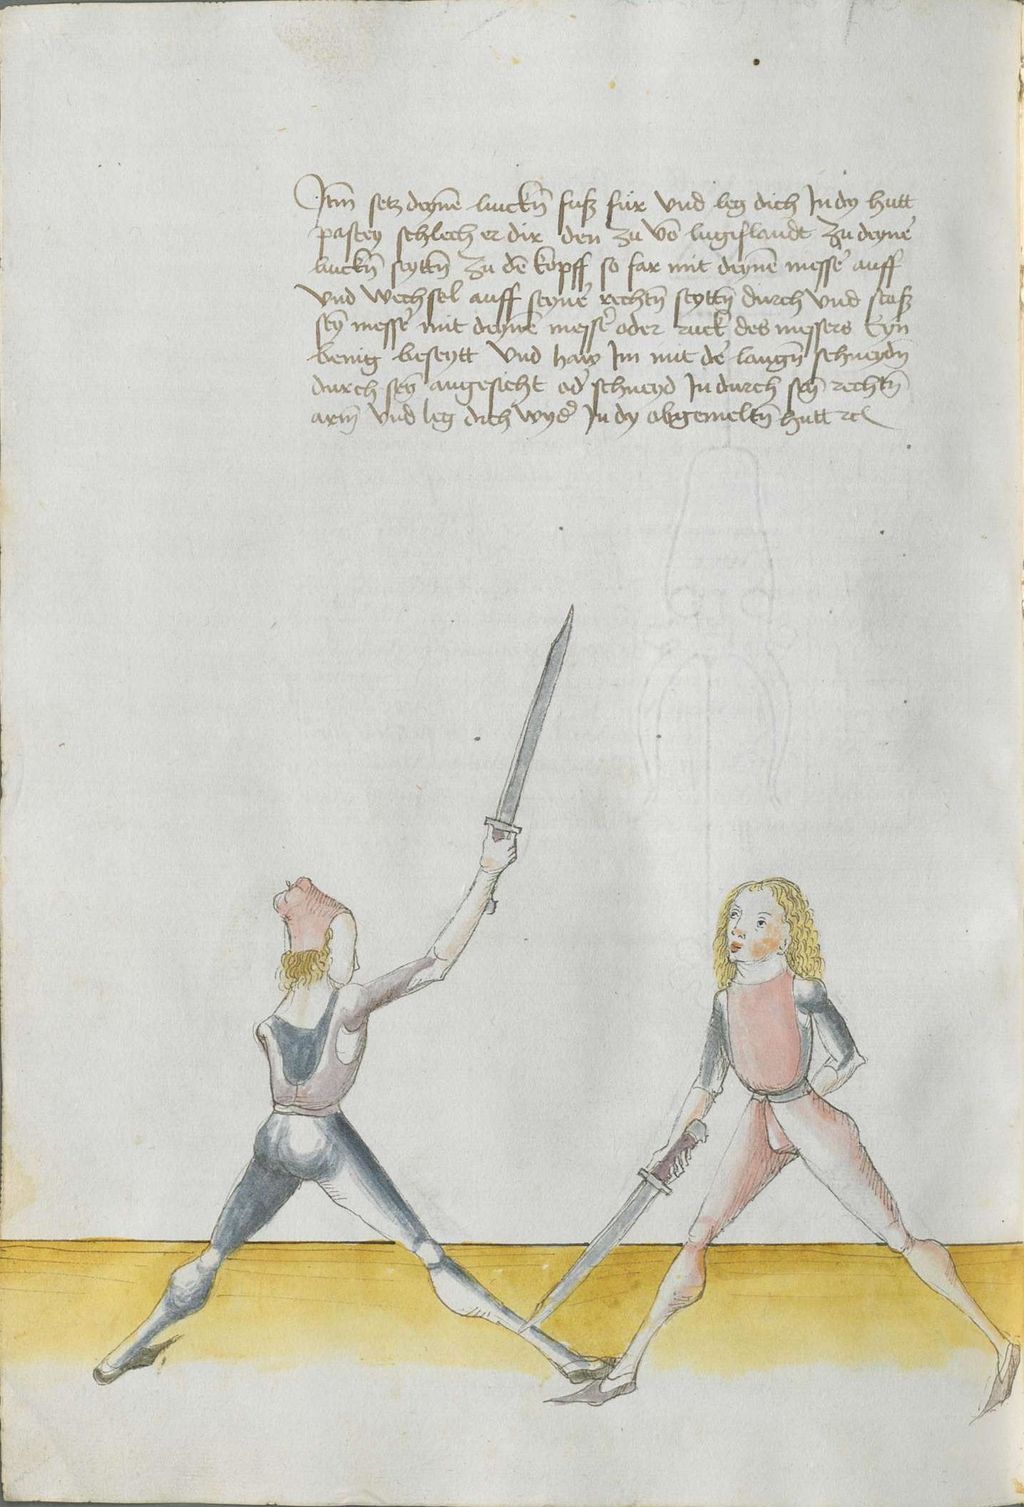 Itm̄ setz deynē linckn̄ fuß für vnd leg dich In dy hutt
pastey schlech er dir den zu vō luginslandt zu deyner̄
linckn̄ seyttn̄ zu dē kopff so far mit deynē messer̄ auff
vnd wechsel auff seyner̄ rechtn̄ seyttn̄ durch vnd stoß
seȳ messer̄ mit deynē messer̄ oder ruck des messers Eyn
wenig beseytt vnd haw Im mit der̄ langn̄ schneydn̄
durch seȳ angesicht od̄ schneyd In durch seȳ rechtn̄
arm̄ vnd leg dich wyd̄ In dy obgemeltn̄ hutt rc